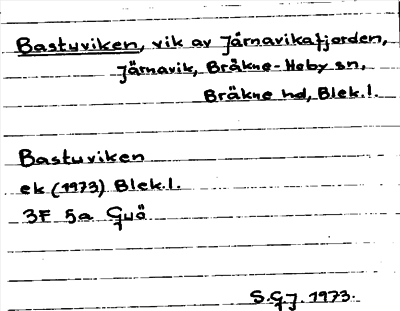 Bastuviken, vik av Järnavikafjorden,
Järnavik, Bräkne-Hoby sn,
Bräkne hd, Blek.l.
Bastuviken
ek (1973) Blek.l.
3F 5a Guö
S.G.J. 1973.